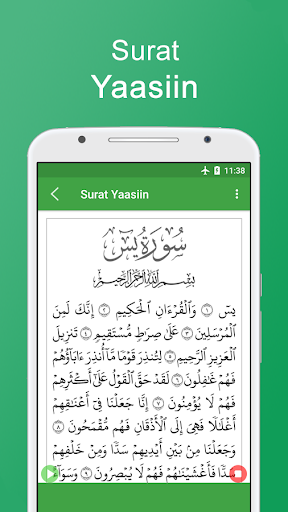 Surat
Yaasiin
11:38
Surat Yaasiin
سورة يس
بسم الله الرحمن الرحيم
يسٓ ١ وَٱلْقُرْءَانِ ٱلْحَكِيمِ ٢ إِنَّكَ لَمِنَ
ٱلْمُرْسَلِينَ ٣ عَلَىٰ صِرَٰطٍ مُّسْتَقِيمٍ ٤ تَنزِيلَ
ٱلْعَزِيزِ ٱلرَّحِيمِ ٥ لِتُنذِرَ قَوْمًا مَّآ أُنذِرَ ءَابَآؤُهُمْ
فَهُمْ غَٰفِلُونَ ٦ لَقَدْ حَقَّ ٱلْقَوْلُ عَلَىٰٓ أَكْثَرِهِمْ
فَهُمْ لَا يُؤْمِنُونَ ٧ إِنَّا جَعَلْنَا فِىٓ أَعْنَٰقِهِمْ
أَغْلَٰلًا فَهِىَ إِلَى ٱلْأَذْقَانِ فَهُم مُّقْمَحُونَ ٨
وَجَعَلْنَا مِنۢ بَيْنِ أَيْدِيهِمْ سَدًّا وَمِنْ خَلْفِهِمْ
سَدًّا فَأَغْشَيْنَٰهُمْ فَهُمْ لَا يُبْصِرُونَ ٩ وَسَوَآءٌ